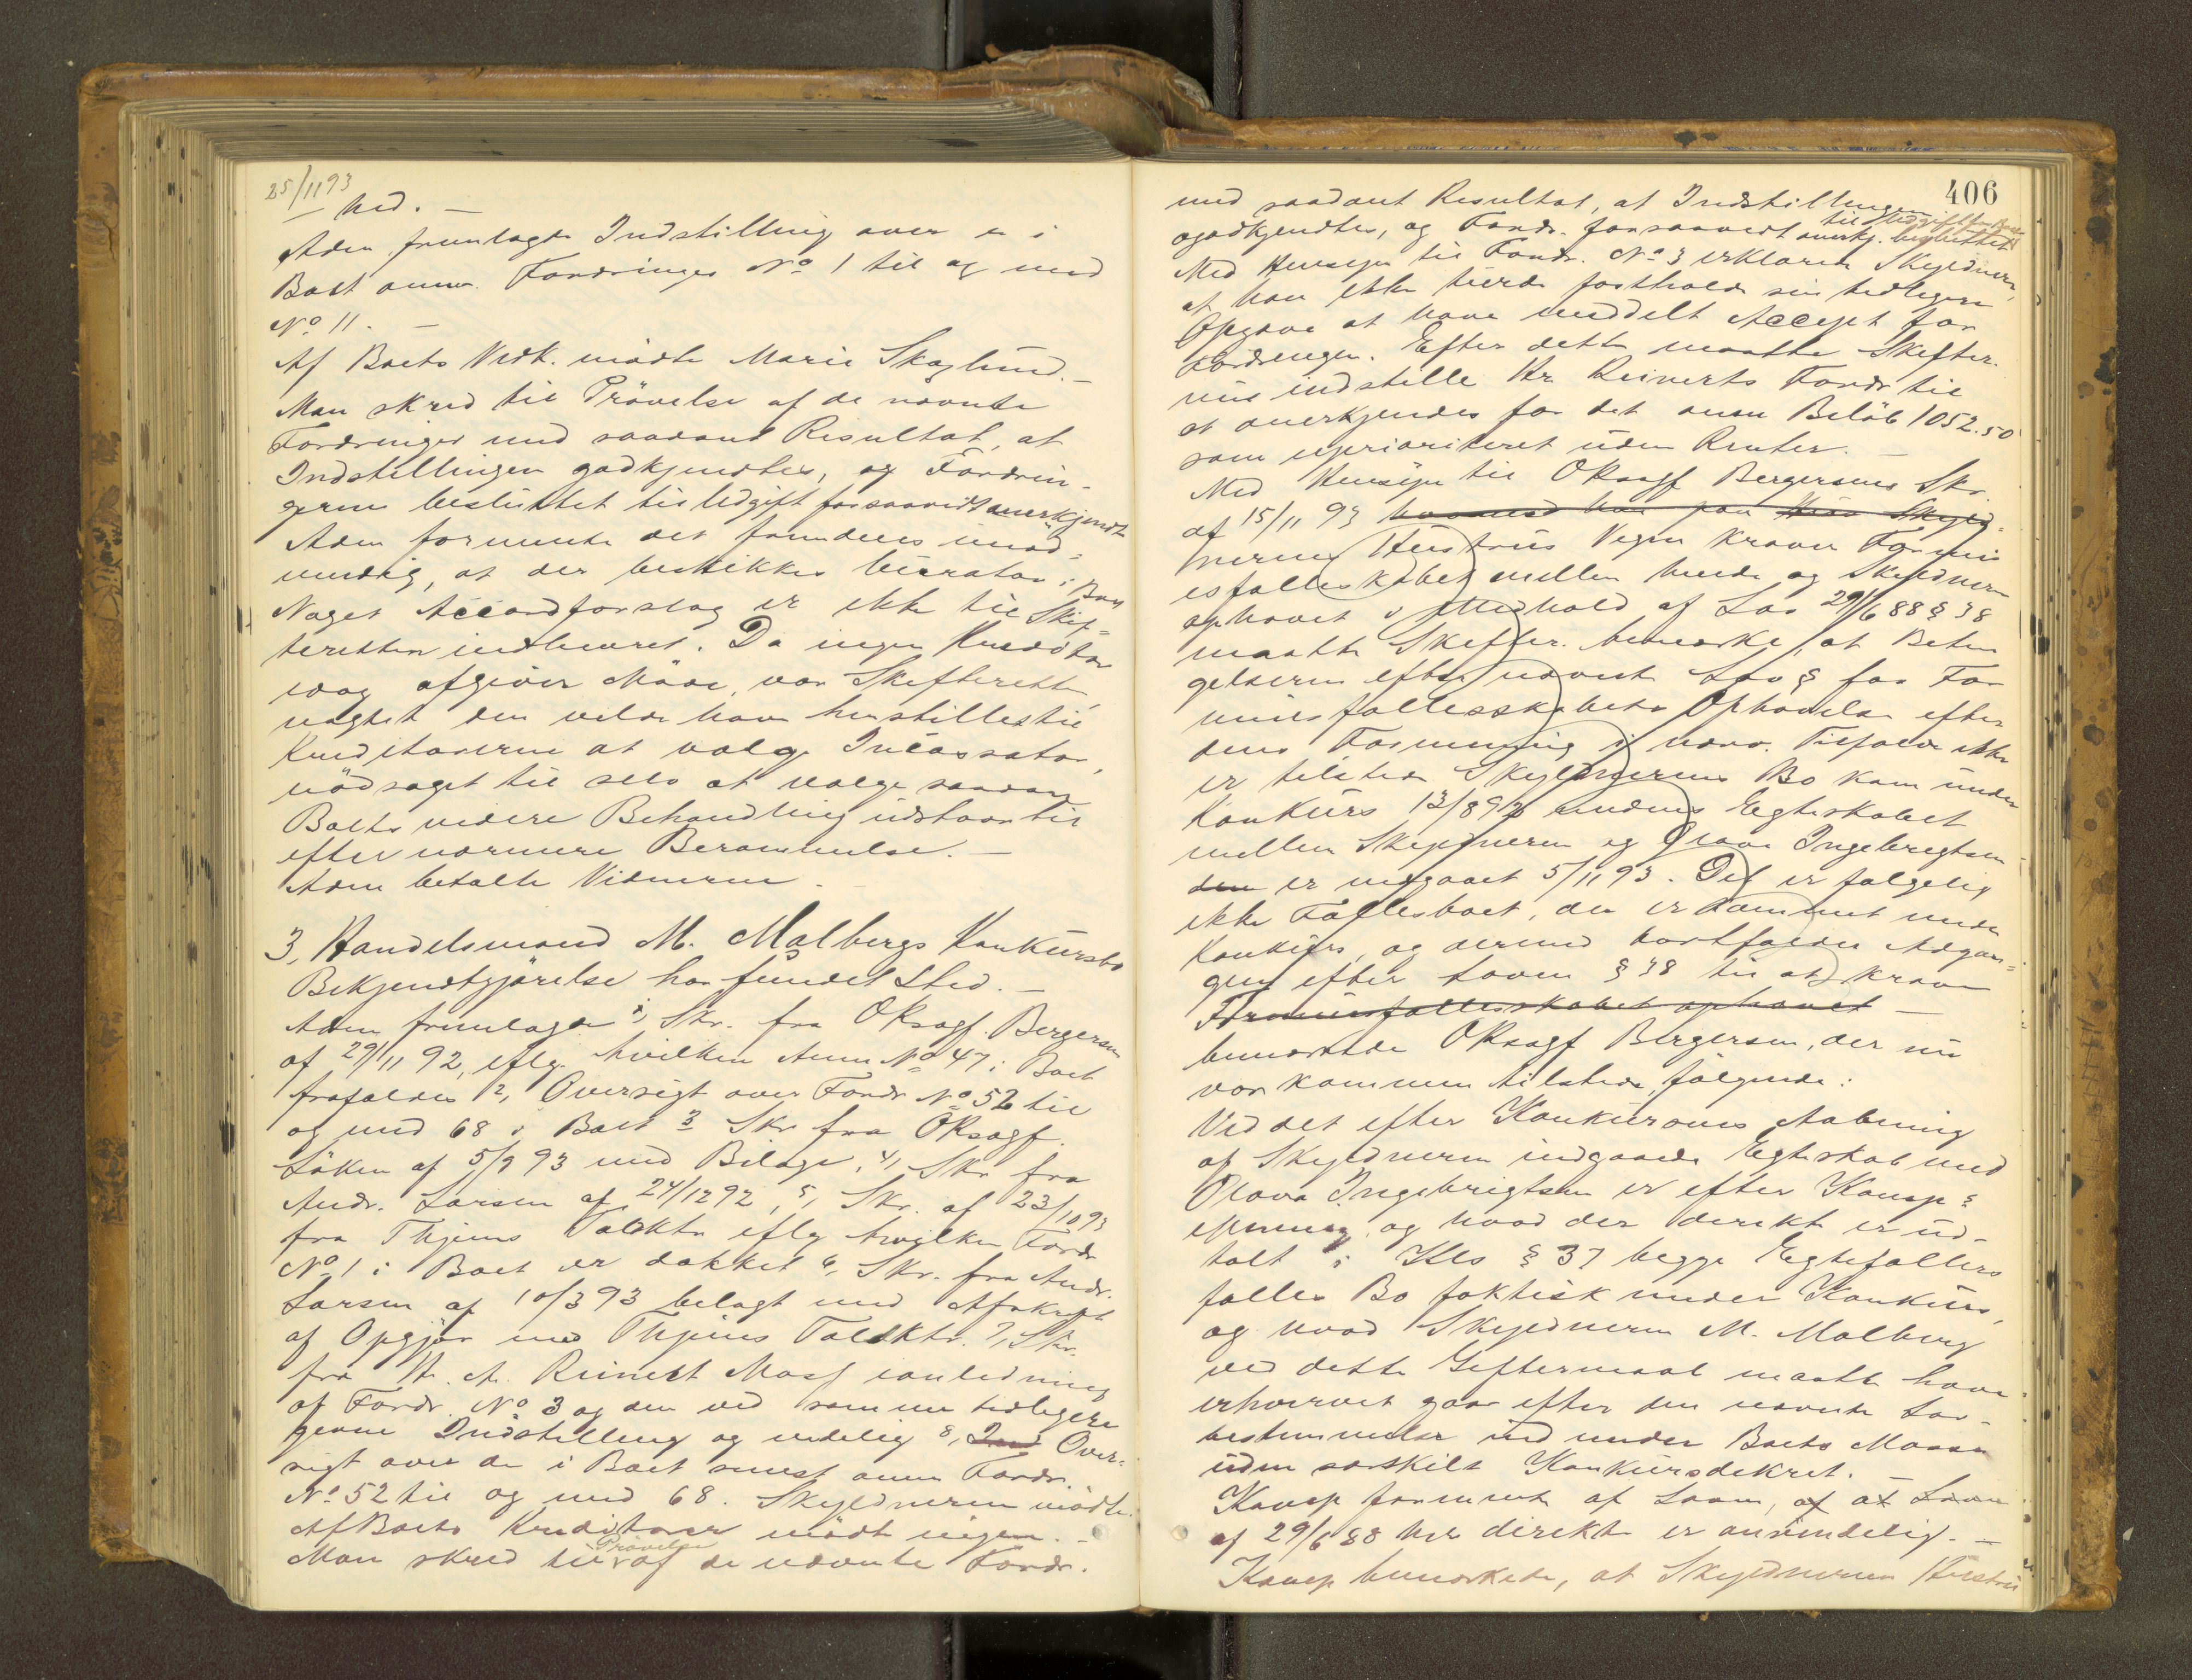 25/11 93
ned. —
Adm fremlagde Indstilling over de i
Boet anm. Fordringer No 1 til og med
No 11. —
Af Boets Vedk. mödte Marie Skoglund. —
Man skred til Prövelse af de nævnte
Fordringer med saadant Resultat, at
Indstillingen godkjendtes, og Fordrin-
gerne besluttet til Udgift forsaavidt anerkjendt
Adm formente det fremdeles unöd-
vendig, at der beskikkes Curator i Boet
Noget Accordforslag er ikke til Skif-
teretten indleveret. Da ingen Kreditor
idag afgiver Möde, var Skifteretten,
uagtet den vilde have henstillet til
Kreditorerne at vælge Incassator,
nödsaget til selv at vælge saadan
Boets videre Behandling udstaar til
efter nærmere Berammelse. —
Adm betalte Vidnerne. —
3, Handelsmand M. Malbergs Konkursbo
Bekjendtgjörelse har fundet Sted. —
Adm fremlagde 1, Skr. fra ORsagf. Bergersen
af 29/11 92, iflg. hvilken Anm No 47 i Boet
frafaldes 2, Oversigt over Fordr No 52 til
og med 68 i Boet 3 Skr fra ORsagf.
Löken af 5/9 93 med Bilage, 4, Skr fra
Andr. Larsen af 24/12 92, 5, Skr. af 23/10 93
fra Thjems Toldktr iflg hvilken Fordr
No 1 i Boet er dækket 6, Skr. fra Andr.
Larsen af 10/3 93 belagt med Afskrift
af Opgjör med Thjems Toldktr. 7, Skr.
fra H. A. Reinert Moss i anledning
af Fordr. No 3 og den ved samme tidligere
givne Indstilling og endelig 8, Ind Over-
sigt over de i Boet senest anm Fordr.
No 52 til og med 68. Skyldneren mödte.
Af Boets Kreditorer mödte ingen. —
Man skred til Prövelse af de nævnte Fordr.
406
med saadant Resultat, at Indstillingen
godkjendtes, og Fordr. forsaavidt anerkj. besluttet
til Udgift
Med Hensyn til Fordr. No 3 erklærede Skyldneren,
at han ikke turde fastholde sin tidligere
Opgave at have meddelt Accept for
Fordringen. Efter dette maatte Skifter.
nu indstille Hr Reinerts Fordr til
at anerkjendes for det anm Belöb 1052.50
som uprioriteret uden Renter. —
Med Hensyn til ORsagf Bergersens Skr.
af 15/11 93 hvorved han paa Skyld-
nerens Hustrus Vegne kræver Formu
esfællesskabet mellem hende og Skyldneren
ophævet i Medhold af Lov 29/6 88 § 38
maatte Skifter. bemærke, at Betin
gelserne efter nævnte Lov § for For
muesfællesskabets Ophævelse efter
dens Formening i nærv. Tilfælde ikke
er tilstede Skyldnerens Bo kom under
Konkurs 13/8 92 medens Egteskabet
mellem Skyldneren og Olava Ingebrigtsen
den er indgaaet 5/11 93. Det er fölgelig
ikke Fællesboet, der er kommet under
Konkurs, og dermed bortfalder Adgan-
gen efter Loven § 38 til at kræve
Formuesfællesskabet ophævet —
bemærkede ORsagf Bergersen, der nu
var kommen tilstede, fölgende:
Ved det efter Konkursens Aabning
af Skyldneren indgaaede Egteskab med
Olava Ingebrigtsen er efter Komp s
Mening og hvad der direkte er ud-
talt i Kls § 37 begge Egtefællers
fælles Bo faktisk under Konkurs,
og hvad Skyldneren M. Malberg
ved dette Giftermaal maatte have
erhvervet gaar efter den nævnte Lov-
bestemmelse ind under Boets Masse
uden særskilt Konkursdekret. —
Komp formente af Loven, af at Loven
af 29/6 88 her direkte er anvendelig. —
Komp bemærkede, at Skyldnerens Hustru